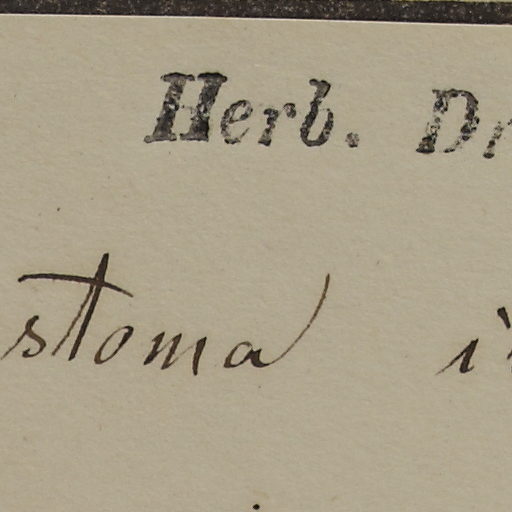 Herb. Dr
stoma i